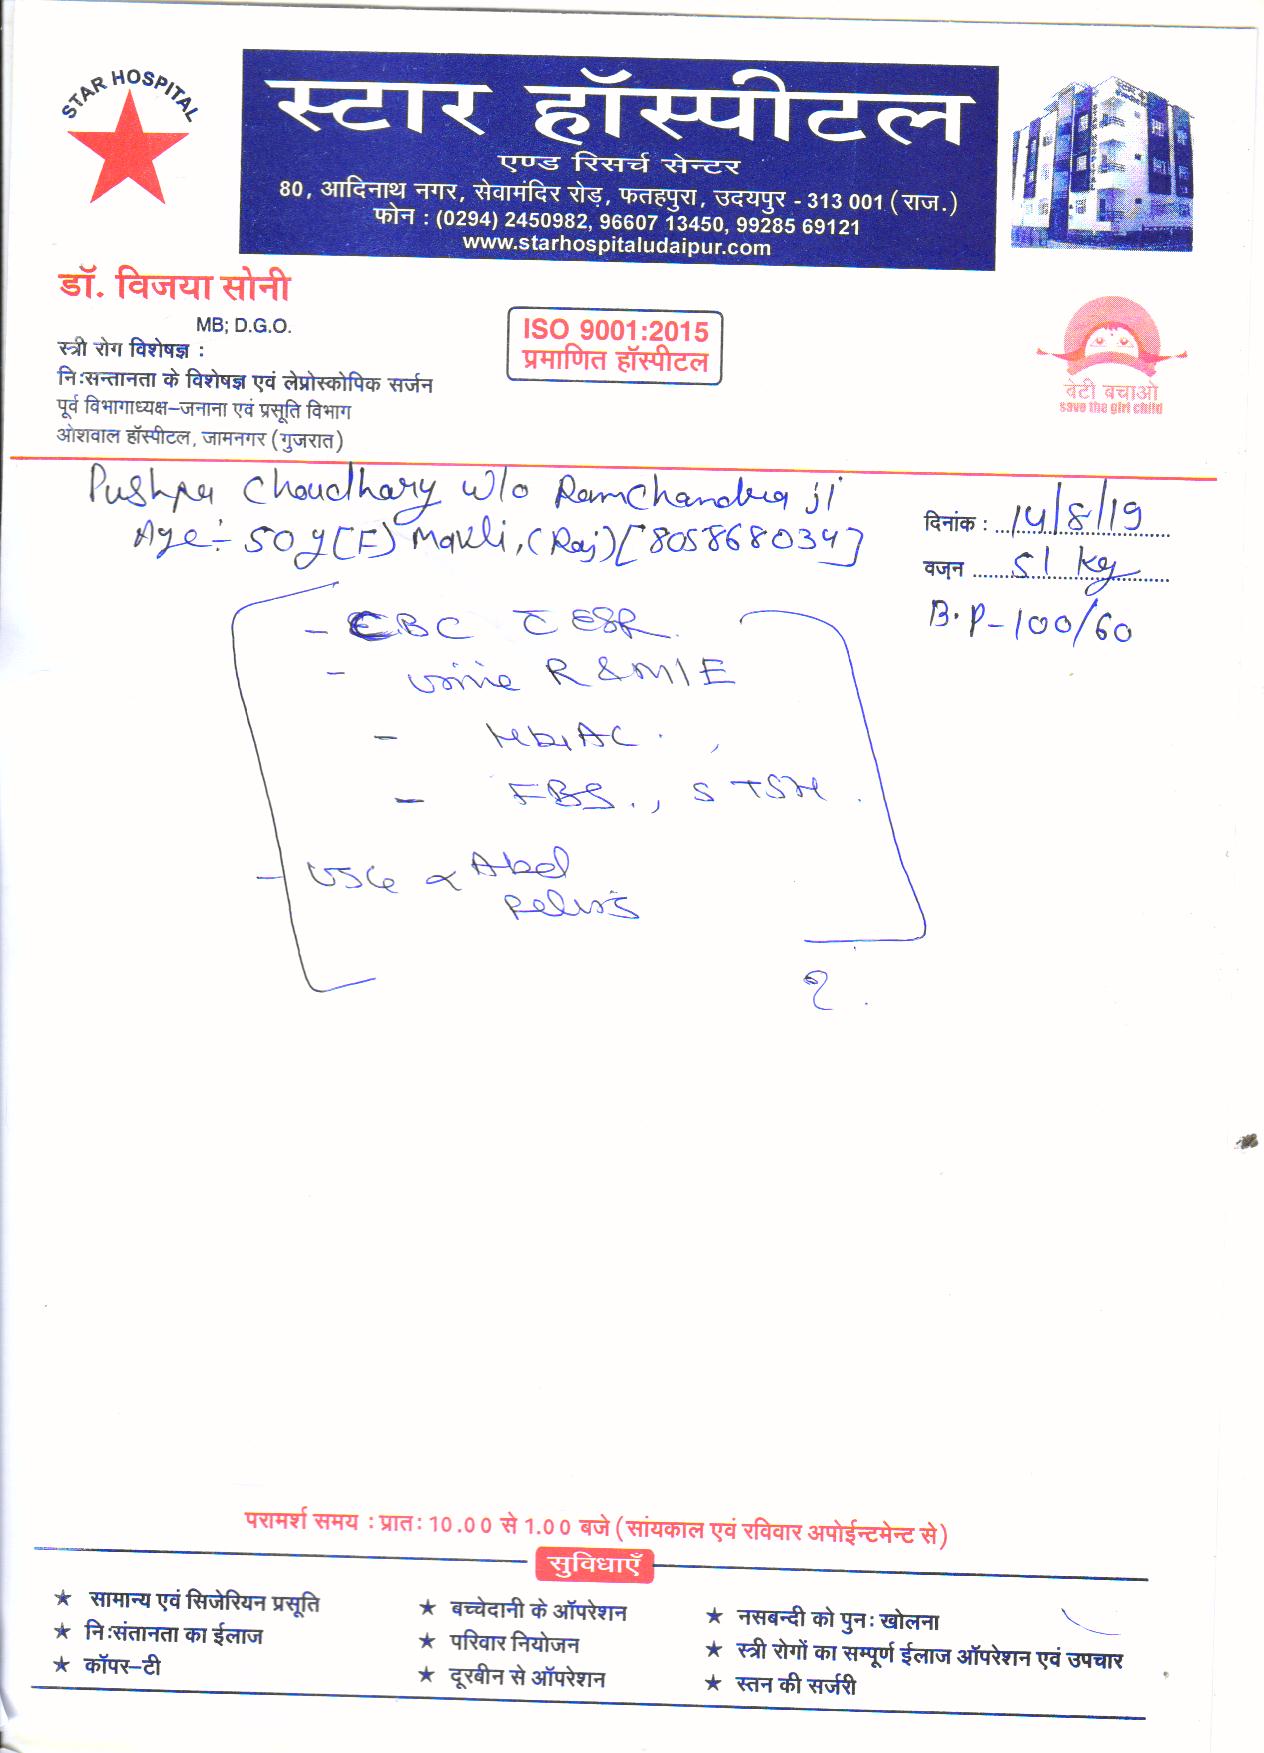 STAR HOSPITAL
स्टार हॉस्पीटल
एण्ड रिसर्च सेन्टर
80, आदिनाथ नगर, सेवामंदिर रोड़, फतहपुरा, उदयपुर - 313 001 (राज.)
फोन : (0294) 2450982, 96607 13450, 99285 69121
www.starhospitaludaipur.com
डॉ. विजया सोनी
MB; D.G.O.
स्त्री रोग विशेषज्ञ :
निःसन्तानता के विशेषज्ञ एवं लेप्रोस्कोपिक सर्जन
पूर्व विभागाध्यक्ष–जनाना एवं प्रसूति विभाग
ओशवाल हॉस्पीटल, जामनगर (गुजरात)
ISO 9001:2015
प्रमाणित हॉस्पीटल
बेटी बचाओ
save the girl child
Pushpa Choudhary w/o Ramchandra ji
Age:- 50 y [F] Makli, (Raj) [805868034]
दिनांक : 14/8/19
वज़न 51 kg
B.P - 100/60
- CBC c̄ ESR.
- Urine R & M/E
- HbA1C. ,
- FBS., S TSH.
- USG Abd
Pelvis
परामर्श समय : प्रातः 10.00 से 1.00 बजे (सांयकाल एवं रविवार अपोईन्टमेन्ट से)
सुविधाएँ
★ सामान्य एवं सिजेरियन प्रसूति
★ निःसंतानता का ईलाज
★ कॉपर–टी
★ बच्चेदानी के ऑपरेशन
★ परिवार नियोजन
★ दूरबीन से ऑपरेशन
★ नसबन्दी को पुनः खोलना
★ स्त्री रोगों का सम्पूर्ण ईलाज ऑपरेशन एवं उपचार
★ स्तन की सर्जरी